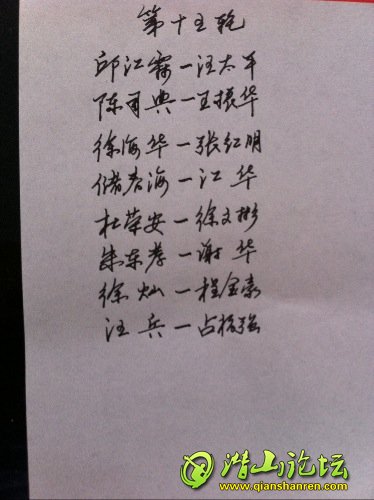 第十五轮
邱江霖-汪太平
陈可典-王振华
徐海华-张红明
储春海-江华
杜荣安-徐文彬
朱东孝-谢华
徐灿-程金豪
汪兵-占松强
潜山论坛
www.qianshanren.com